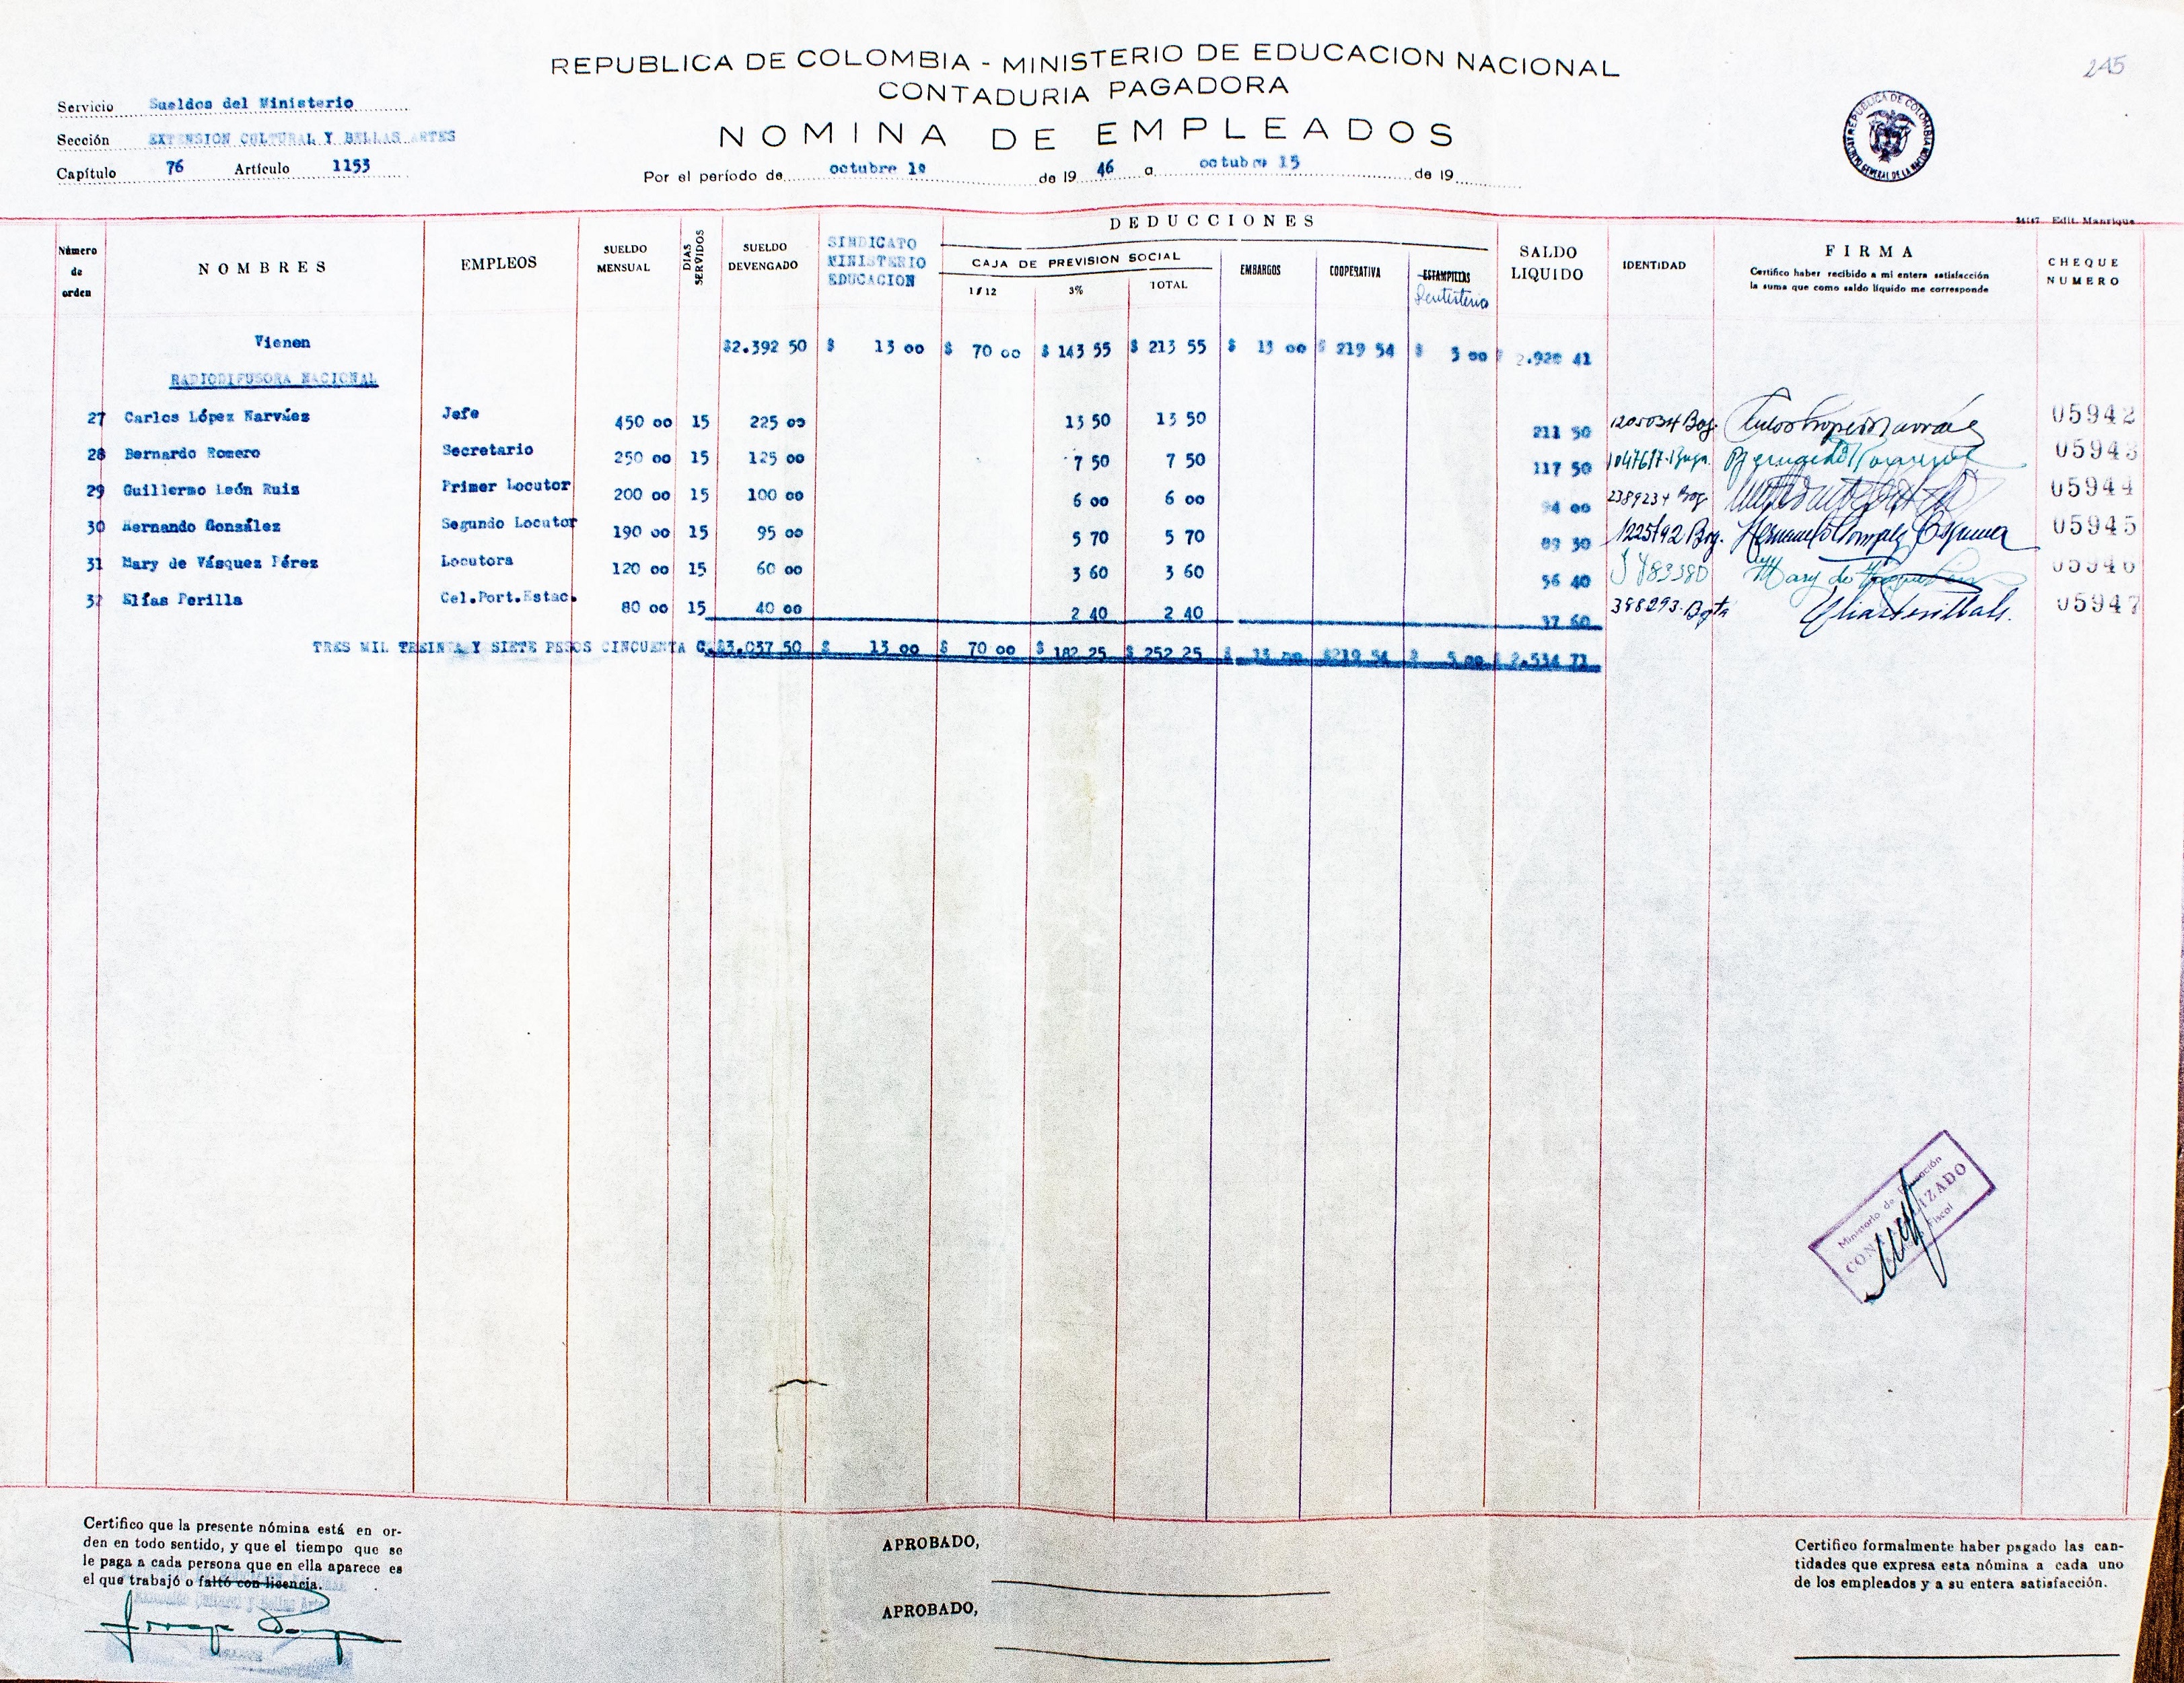 245
REPUBLICA DE COLOMBIA - MINISTERIO DE EDUCACION NACIONAL
CONTADURIA PAGADORA
NOMINA DE EMPLEADOS
Servicio Sueldos del Ministerio
Sección EXTENSION CULTURAL Y BELLAS ARTES
Capítulo 76 Artículo 1153
Por el período de octubre 1º de 19 46 a octubre 15 de 19
Edit. Manrique
DEDUCCIONES
Número de orden NOMBRES EMPLEOS SUELDO MENSUAL DIAS SERVIDOS SUELDO DEVENGADO SINDICATO MINISTERIO EDUCACION CAJA DE PREVISION SOCIAL 1/12 3% TOTAL EMBARGOS COOPERATIVA ESTAMPILLAS SALDO LIQUIDO IDENTIDAD FIRMA CHEQUE NUMERO
Certifico haber recibido a mi entera satisfacción
la suma que como saldo líquido me corresponde
Vienen $2.392 50 $ 13 00 $ 70 00 $ 143 55 $ 213 55 $ 13 00 $ 219 54 $ 5 00 41
RADIODIFUSORA NACIONAL
27 Carlos López Narváez Jefe 450 00 15 225 00 13 50 13 50 211 50 05942
28 Bernardo Romero Secretario 250 00 15 125 00 7 50 7 50 117 50 05943
29 Guillermo León Ruiz Primer Locutor 200 00 15 100 00 6 00 6 00 94 00 05944
30 Hernando González Segundo Locutor 190 00 15 95 00 5 70 5 70 89 30 05945
31 Mary de Vásquez Pérez Locutora 120 00 15 60 00 3 60 3 60 56 40 05946
32 Elías Perilla Cel.Port.Estac. 80 00 15 40 00 2 40 2 40 37 60 388293 Bgta 05947
TRES MIL TREINTA Y SIETE PESOS CINCUENTA C. $3.037 50 $ 13 00 $ 70 00 $ 182 25 $ 252 25 $ 13 00 $219 54 $ 5 00 $ 2.534 71
Ministerio de Educación
CONTROLIZADO
Fiscal
Certifico que la presente nómina está en or-
den en todo sentido, y que el tiempo que se
le paga a cada persona que en ella aparece es
el que trabajó o faltó con licencia.
APROBADO,
APROBADO,
Certifico formalmente haber pagado las can-
tidades que expresa esta nómina a cada uno
de los empleados y a su entera satisfacción.